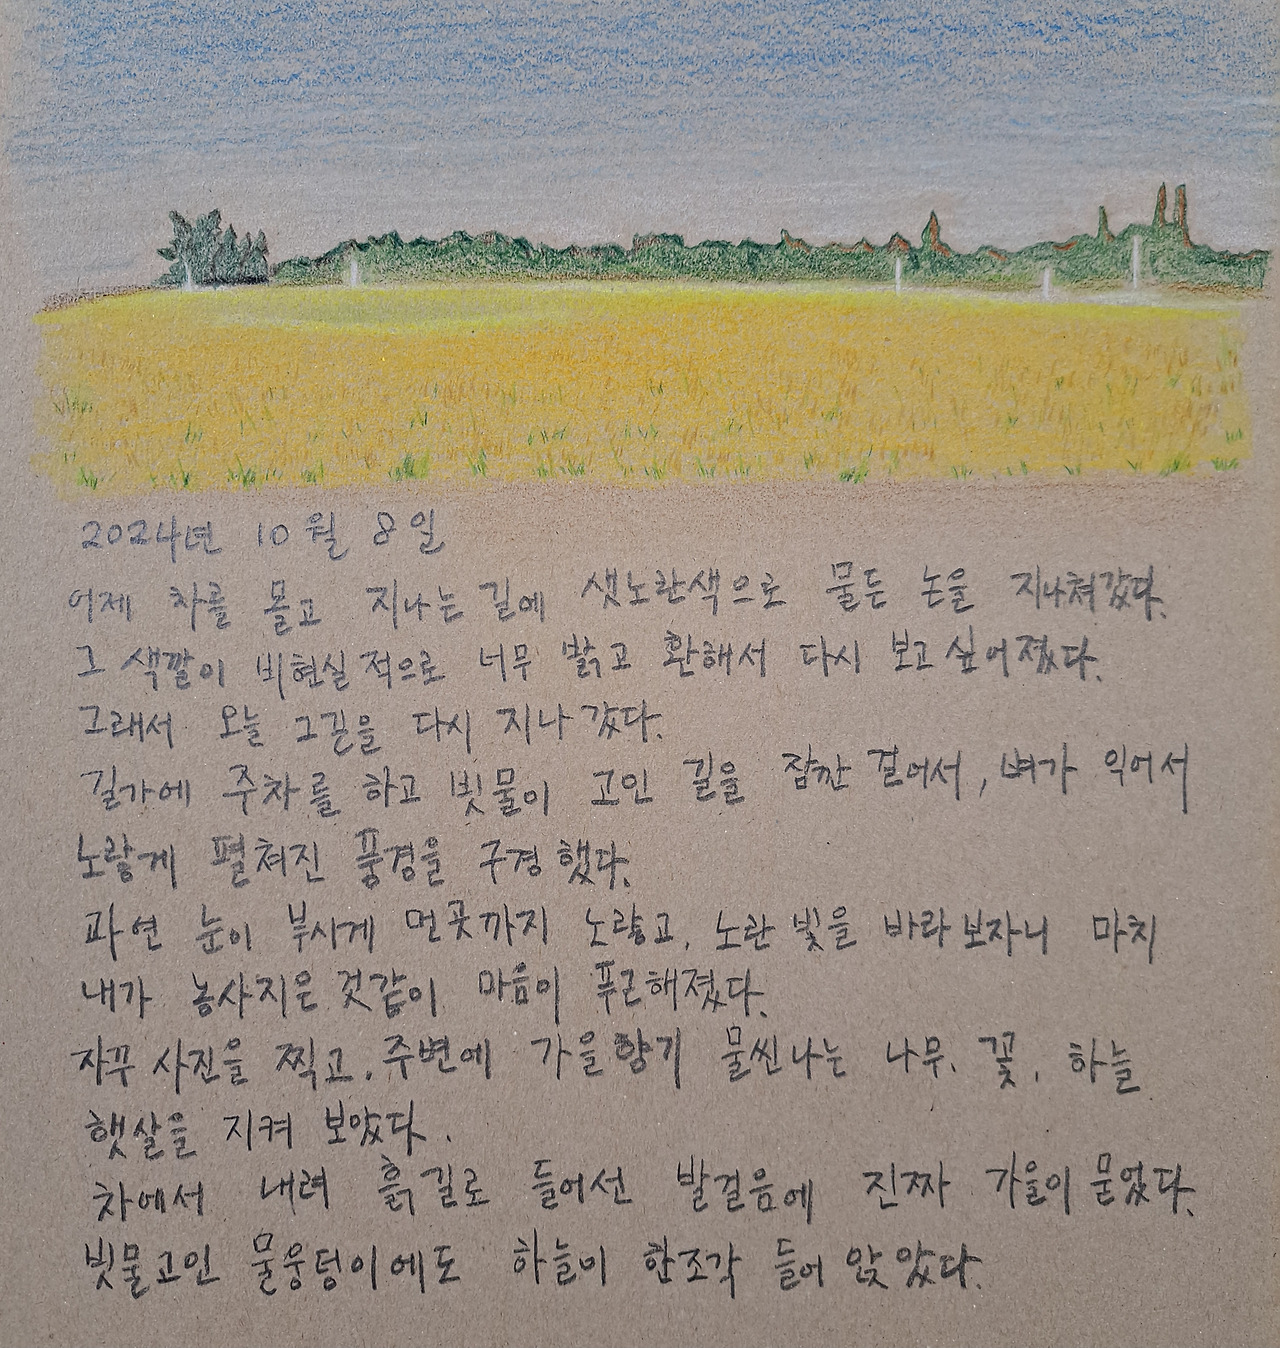 2024년 10월 8일
어제 차를 몰고 지나는 길에 샛노란색으로 물든 논을 지나쳐갔다.
그 색깔이 비현실적으로 너무 밝고 환해서 다시 보고 싶어졌다.
그래서 오늘 그길을 다시 지나갔다.
길가에 주차를 하고 빗물이 고인 길을 잠깐 걸어서, 벼가 익어서
노랗게 펼쳐진 풍경을 구경했다.
과연 눈이 부시게 먼곳까지 노랗고, 노란 빛을 바라보자니 마치
내가 농사지은 것같이 마음이 푸근해졌다.
자꾸 사진을 찍고, 주변에 가을향기 물씬나는 나무, 꽃, 하늘
햇살을 지켜 보았다.
차에서 내려 흙길로 들어선 발걸음에 진짜 가을이 묻었다.
빗물고인 물웅덩이에도 하늘이 한조각 들어 앉았다.